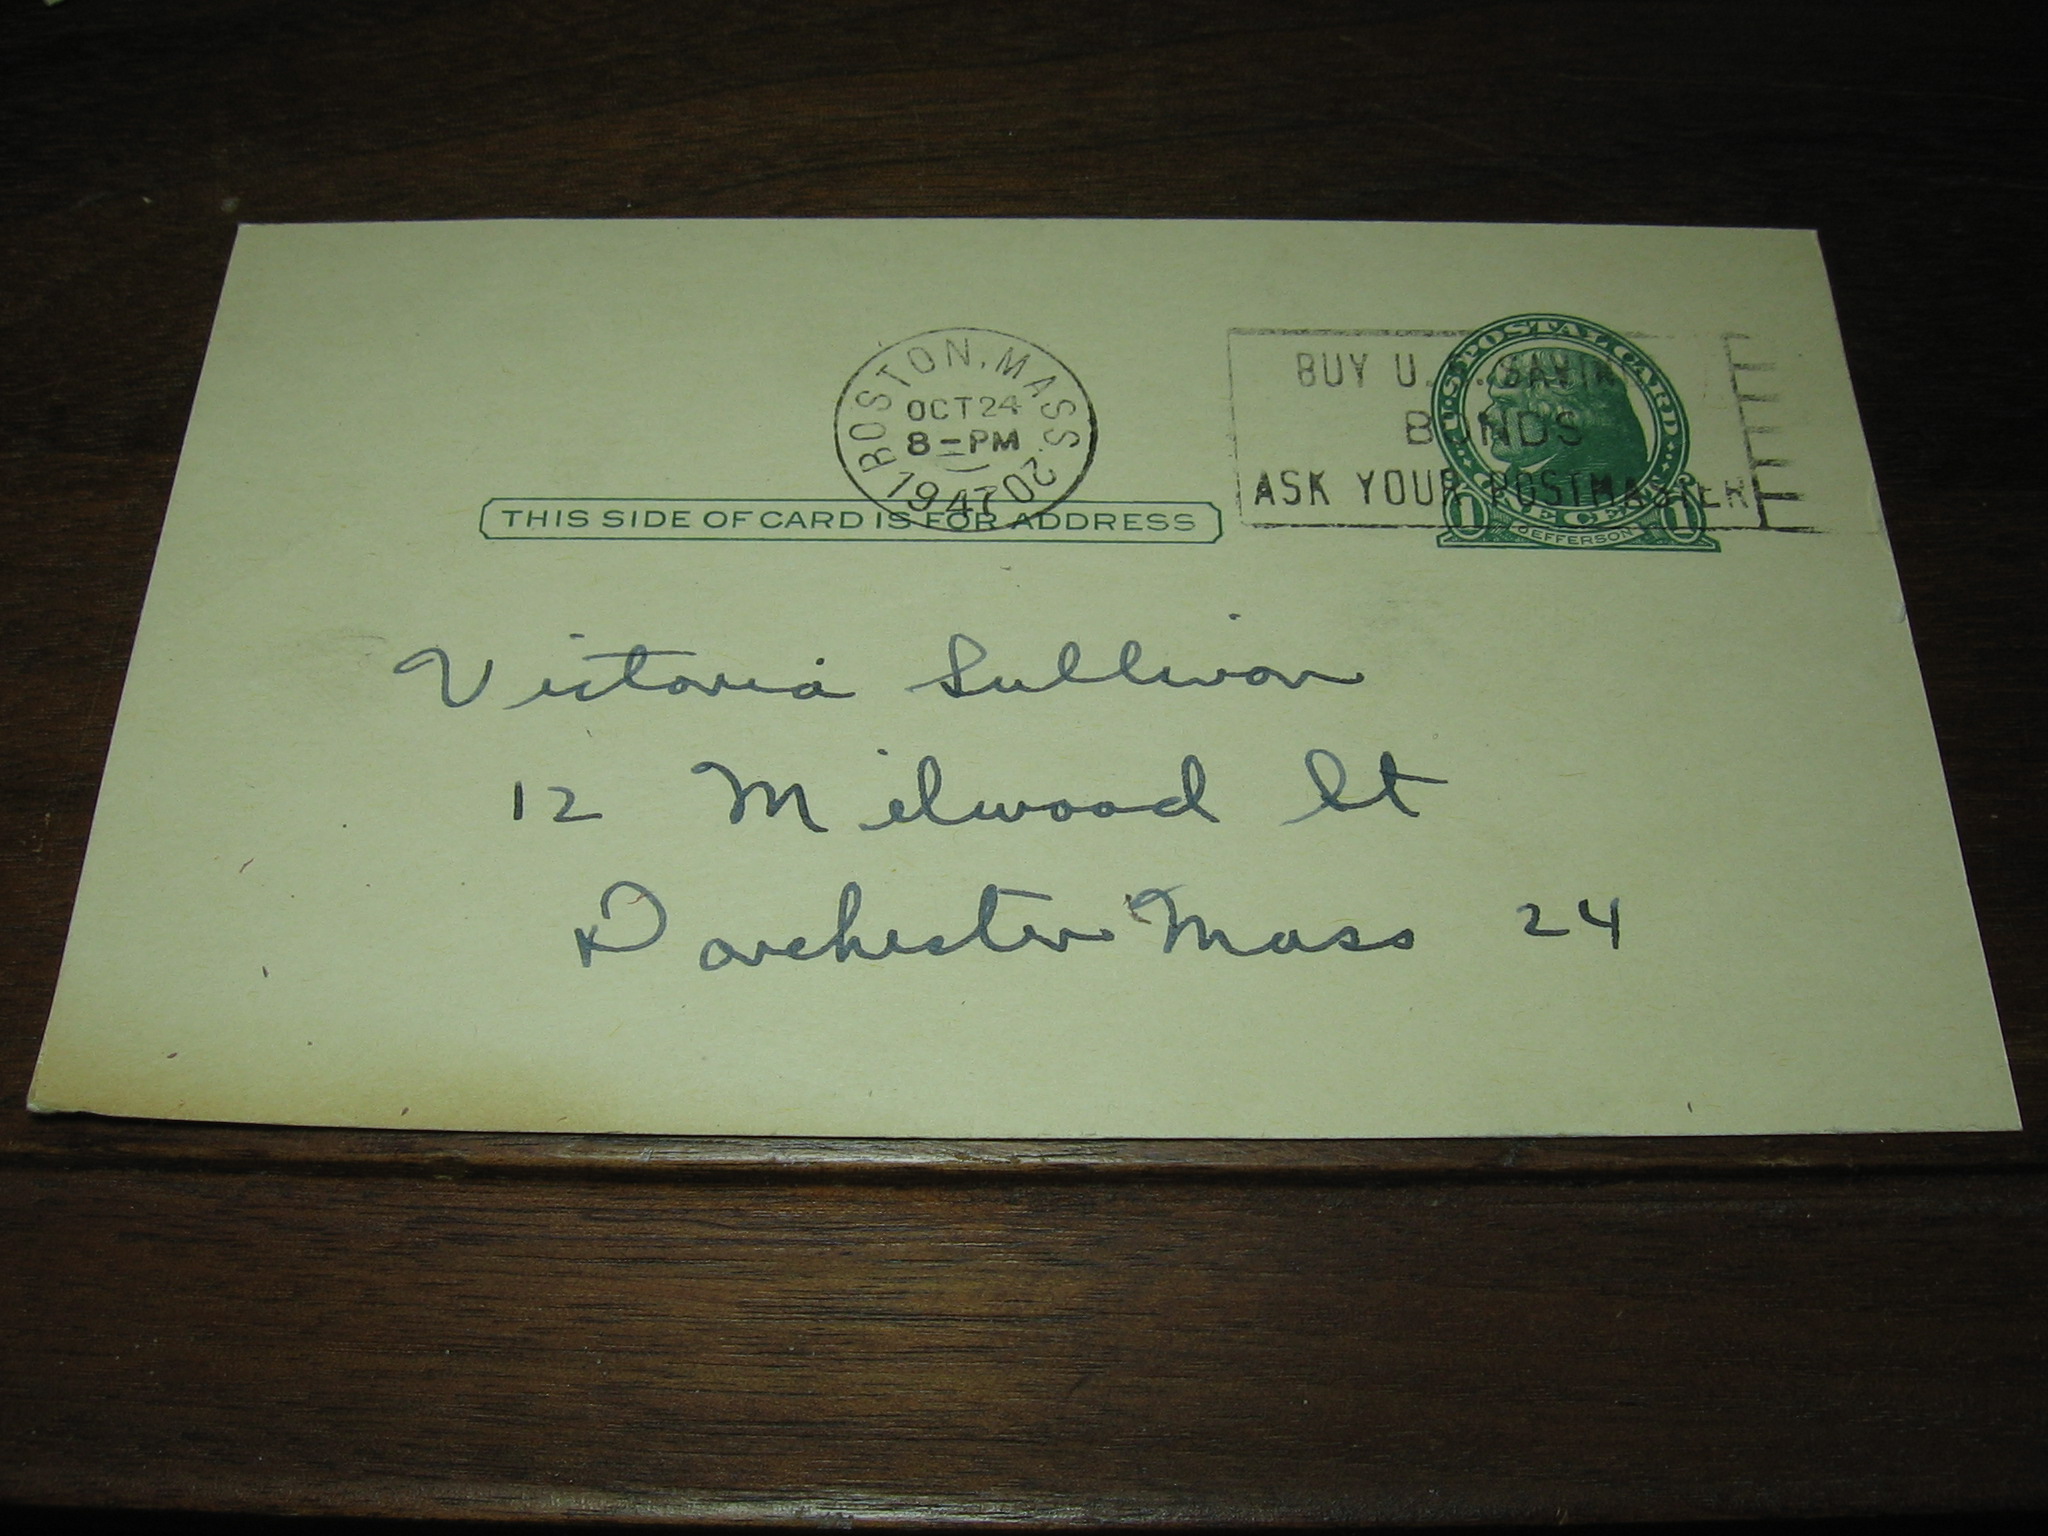 BOSTON, MASS. 20
OCT 24
8-PM
1947
BUY U.S. SAVINGS
BONDS
ASK YOUR POSTMASTER
U·S·POSTAL CARD
1 ONE CENT 1
JEFFERSON
THIS SIDE OF CARD IS FOR ADDRESS
Victoria Sullivan
12 Milwood St
Dorchester Mass 24